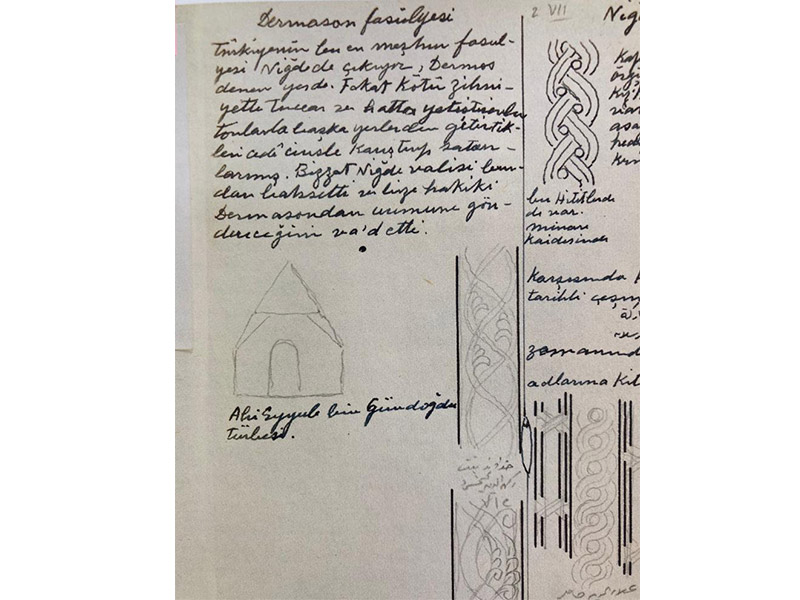 Dermason fasülyesi
Türkiyenin en en meşhur fasul-
yesi Niğde de çıkıyor, Dermos
denen yerde. Fakat Kötü zihni-
yette tüccar ve hatta yetiştirenler
tonlarla başka yerlerden getirtik-
leri adi cinsle Karıştırıp satar-
larmış. Bizzat Niğde valisi bun-
dan bahsetti ve bize hakiki
Dermasondan numune gön-
dereceğini va'd etti.
Ahi Eyyub bin Gündoğdu
türbesi.
خداوند
2 VII
Niğ
bu Hititlerde
de var.
minare
kaidesinde
Karşısında
tarihli çeşm
zamanında
adlarına Kit